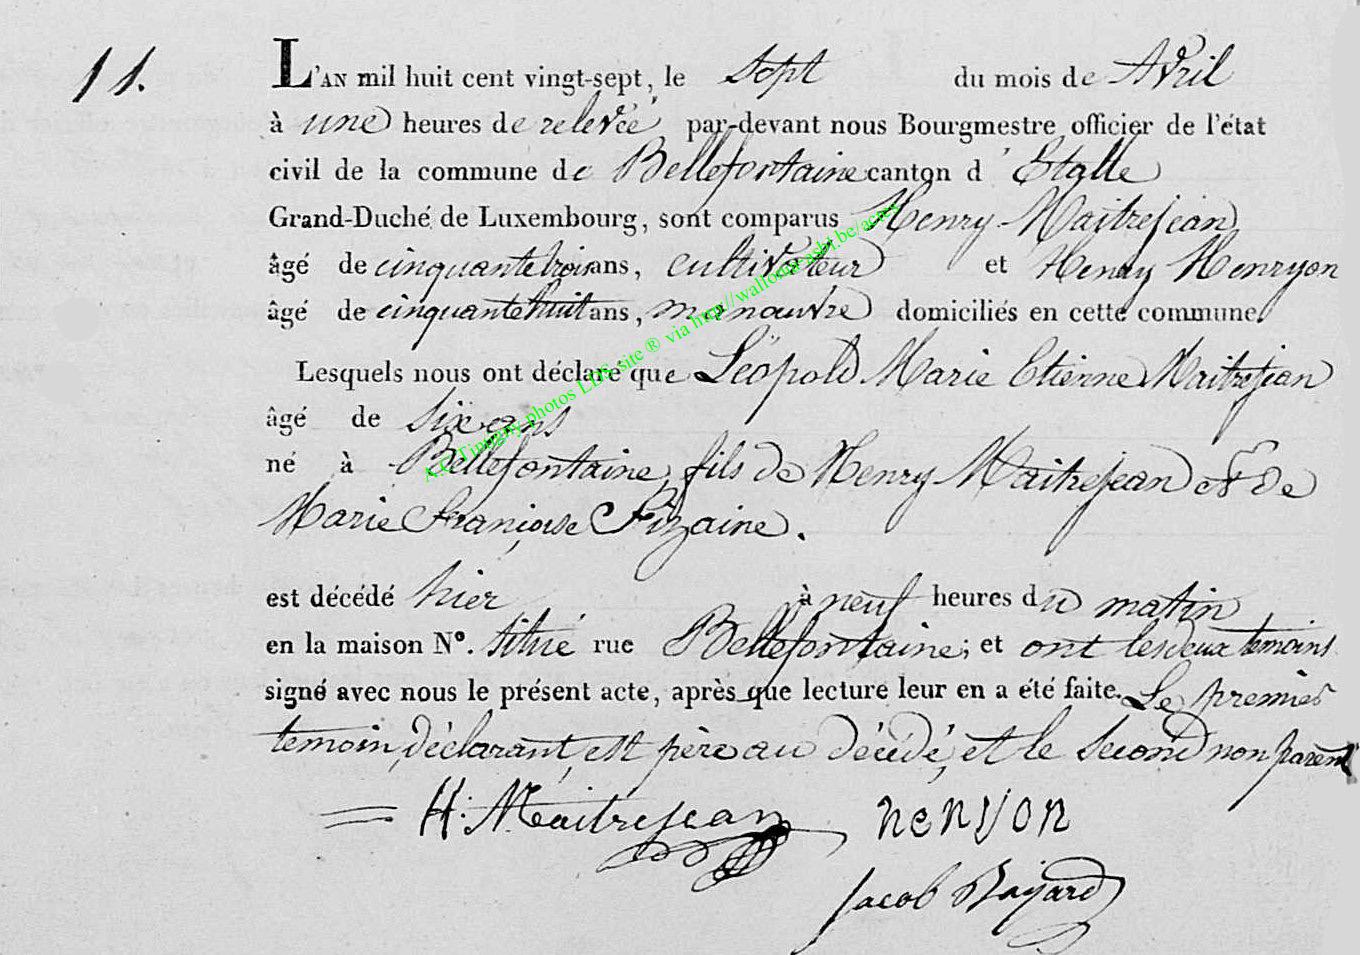 11.
L'AN mil huit cent vingt-sept, le sept du mois de Avril
à une heures de relevée par-devant nous Bourgmestre officier de l'état
civil de la commune de Bellefontaine canton d'Etalle
Grand-Duché de Luxembourg, sont comparus Henry Maitrejean
âgé de cinquante trois ans, cultivateur et Henry Henryon
âgé de cinquante huit ans, manœuvre domiciliés en cette commune.
Lesquels nous ont déclaré que Léopold Marie Etienne Maitrejean
âgé de six ans
né à Bellefontaine, fils de Henry Maitrejean et de
Marie Françoise Fizaine.
est décédé hier à neuf heures du matin
en la maison N°. titué rue Bellefontaine; et ont les deux temoins
signé avec nous le présent acte, après que lecture leur en a été faite. Le premier
temoin, déclarant, est père au décédé, et le second non parent
H: Maitrejean henryon
Jacob Bajard
A.C. Tintigny photos LDS site ® via http://wallonia-asbl.be/actes